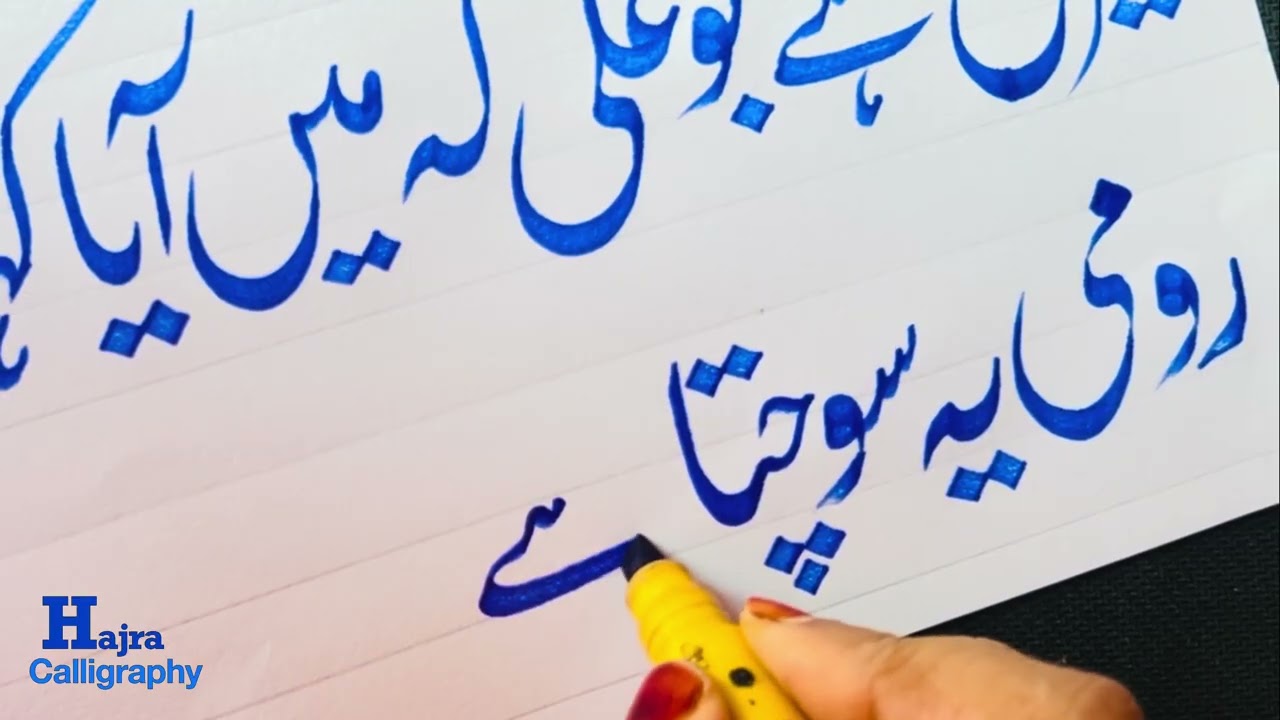 ہے بو علی کہ میں آیا
رومی یہ سوچتا ہے
Hajra
Calligraphy